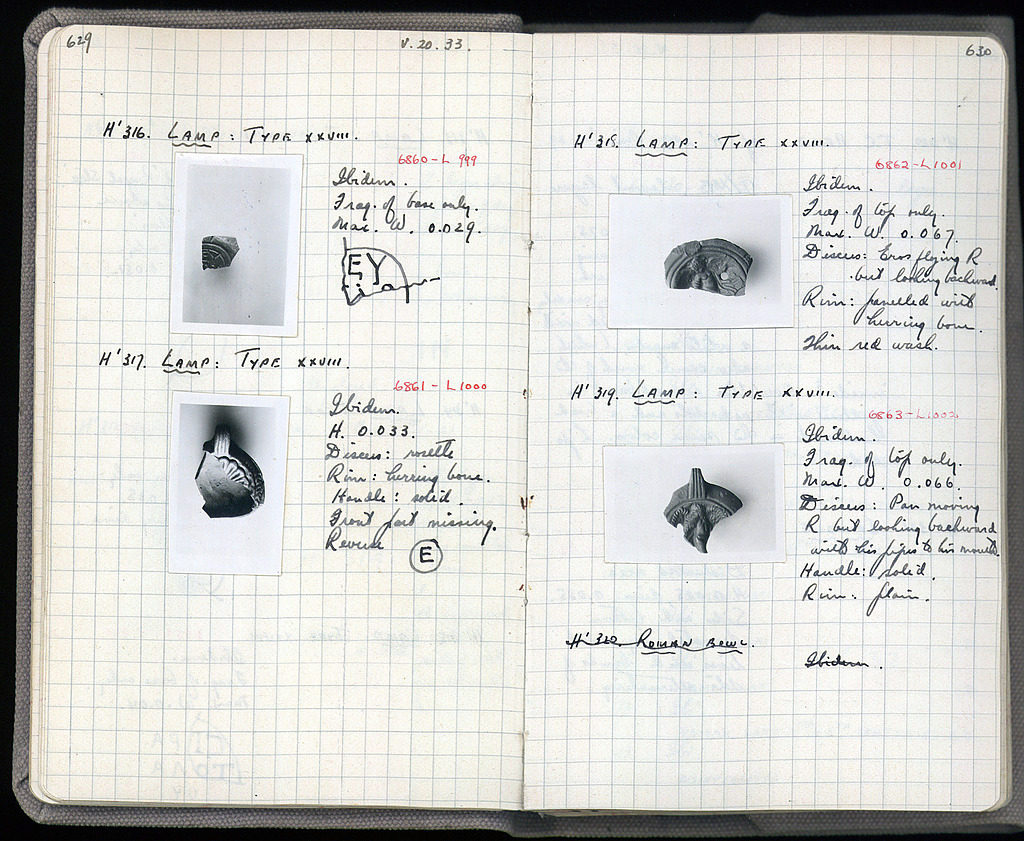 629
V. 20. 33.
H' 316. LAMP: TYPE XXVIII.
6860 - L 999
Ibidem.
Frag. of base only.
Max. W. 0.029.
EY
H' 317. LAMP: TYPE XXVIII.
6861 - L 1000
Ibidem.
H. 0.033.
Discus: rosette
Rim: herring bone.
Handle: solid.
Front part missing.
Reverse E
630
H' 318. LAMP: TYPE XXVIII.
6862 - L 1001
Ibidem.
Frag. of top only.
Max. W. 0.067.
Discus: Eros flying R
but looking backward.
Rim: panelled with
herring bone.
Thin red wash.
H' 319. LAMP: TYPE XXVIII.
6863 - L 1002
Ibidem.
Frag. of top only.
Max. W. 0.066.
Discus: Pan moving
R but looking backward
with his pipes to his mouth.
Handle: solid.
Rim: plain.
H' 320. ROMAN BOWL.
Ibidem.